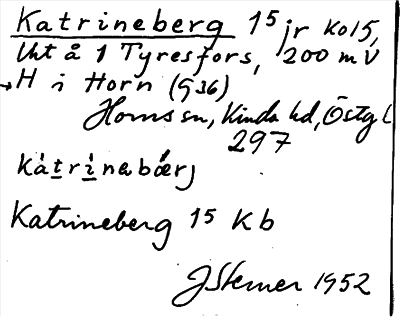 Katrineberg 15 jr Ko15,
Uht å 1 Tyresfors, 200 m V
→ H i Horn (G36)
Horns sn, Kinda hd, Östg l
297
kàtrinebærj
Katrineberg 15 Kb
JSterner 1952